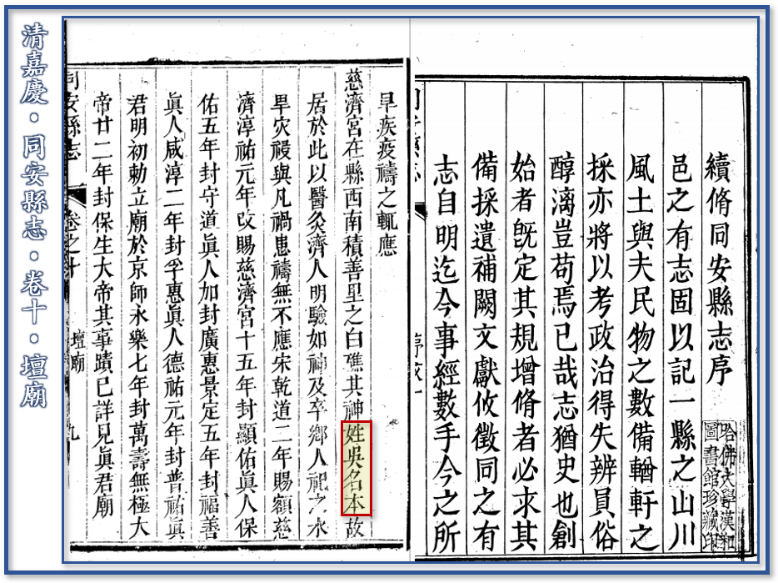 清嘉慶·同安縣志·卷十·壇廟
續脩同安縣志序
邑之有志固以記一縣之山川
風土與夫民物之數備輶軒之
採亦將以考政治得失辨貞俗
醇漓豈苟焉已哉志猶史也創
始者旣定其規增脩者必求其
備採遺補闕文獻攸徵同之有
志自明迄今事經數手今之所
哈佛大學漢和
圖書館珍藏印
旱疾疫禱之輒應
慈濟宮在縣西南積善里之白礁其神姓吳名本故
居於此以醫灸濟人明驗如神及卒鄉人祀之水
旱灾祲與凡禍患禱無不應宋乾道二年賜額慈
濟淳祐元年改賜慈濟宮十五年封顯佑眞人保
佑五年封守道眞人加封廣惠景定五年封福善
眞人咸淳二年封孚惠眞人德祐元年封普祐眞
君明初勅立廟於京師永樂七年封萬壽無極大
帝廿二年封保生大帝其事蹟已詳見眞君廟
同安縣志
卷之十
壇廟
九